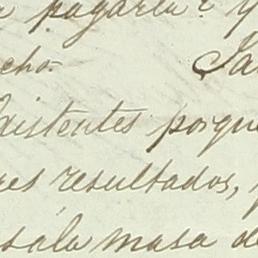 pagarla? y
cho.
aistentes porque
res resultados,
sála masa de